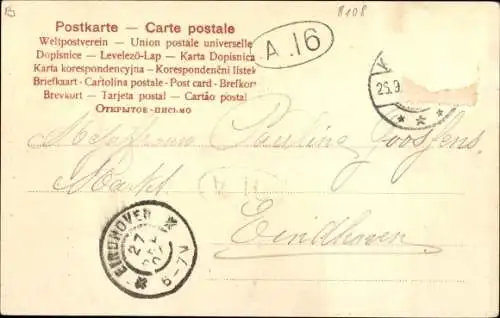 8108
Postkarte – Carte postale
Weltpostverein - Union postale universelle
Dopisnice - Levelező-Lap - Karta Dopisnica
Karta korespondencyjna - Korespondenční listek
Briefkaart - Cartolina postale - Post card - Brefkort
Brevkort - Tarjeta postal - Cartão postal
Открытое-письмо
A.16
25.9
Pauline Goossens
Markt
Eindhoven
EINDHOVEN
27
6-7V